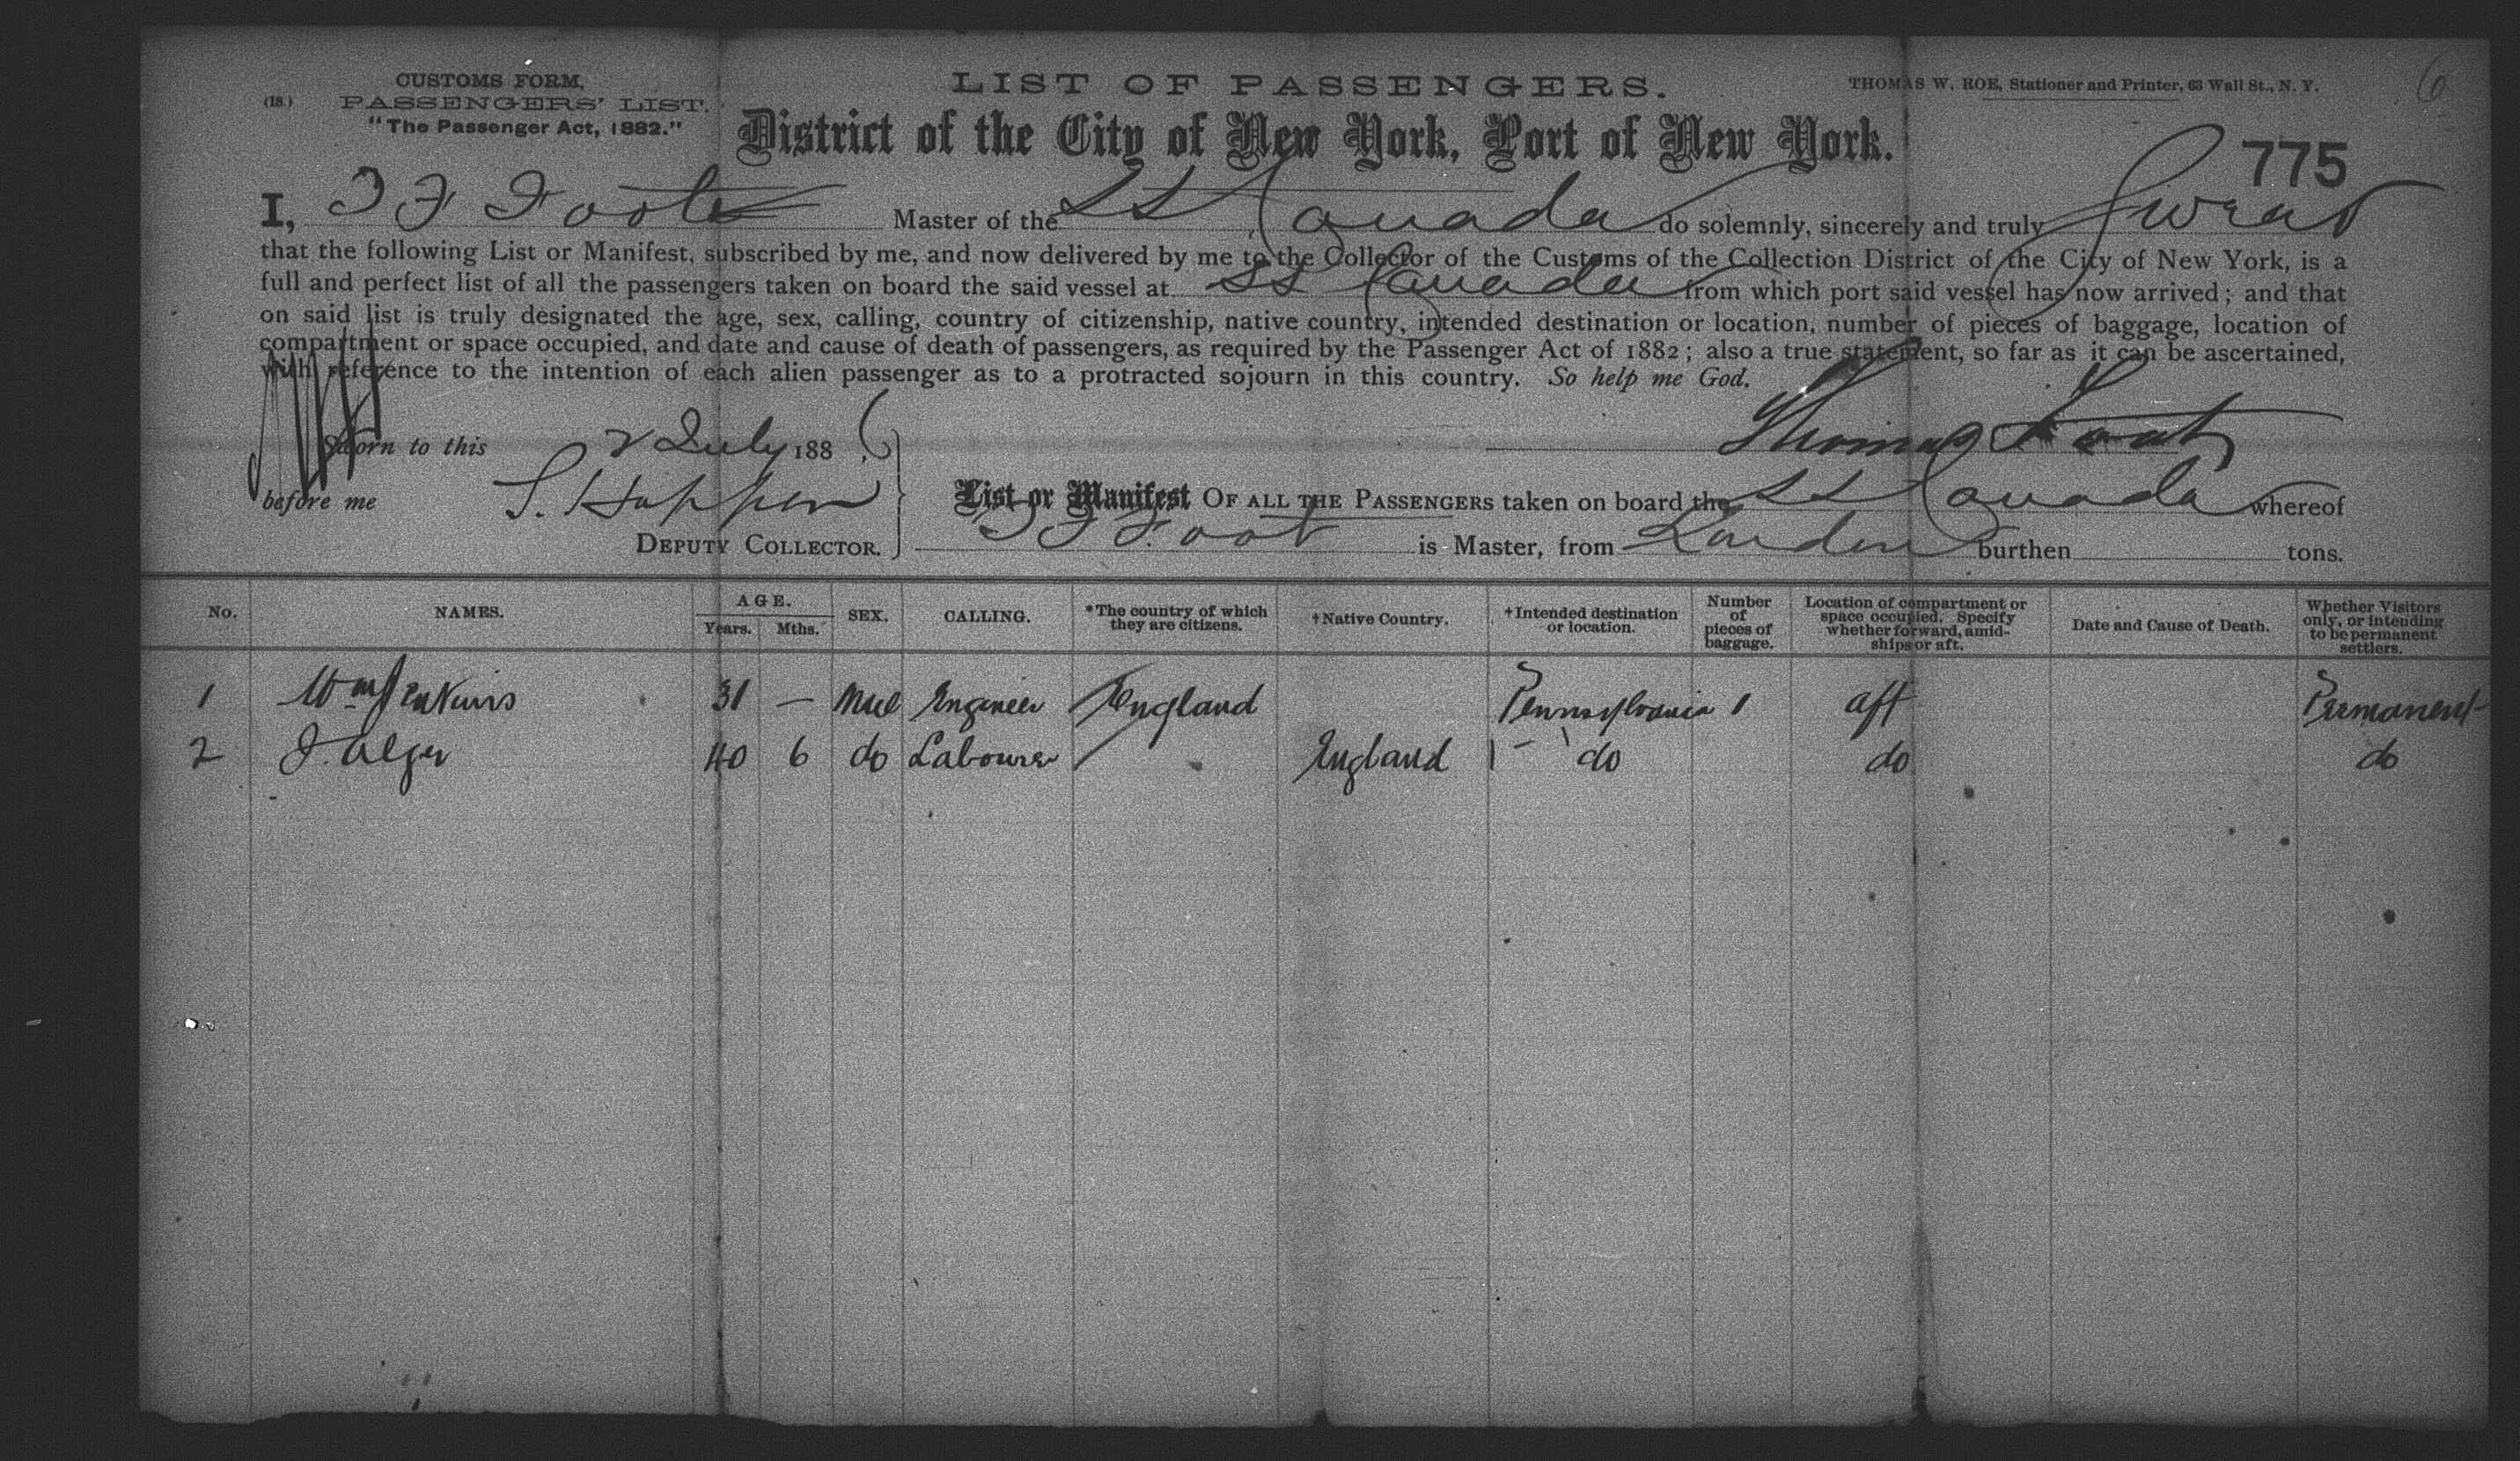 CUSTOMS FORM,
(18.) PASSENGERS' LIST.
"The Passenger Act, 1882."
LIST OF PASSENGERS.
THOMAS W. ROE, Stationer and Printer, 63 Wall St., N. Y.
6
District of the City of New York, Port of New York.
775
I, T F Foote Master of the SS Canada do solemnly, sincerely and truly Swear
that the following List or Manifest, subscribed by me, and now delivered by me to the Collector of the Customs of the Collection District of the City of New York, is a
full and perfect list of all the passengers taken on board the said vessel at SS Canada from which port said vessel has now arrived; and that
on said list is truly designated the age, sex, calling, country of citizenship, native country, intended destination or location, number of pieces of baggage, location of
compartment or space occupied, and date and cause of death of passengers, as required by the Passenger Act of 1882; also a true statement, so far as it can be ascertained,
with reference to the intention of each alien passenger as to a protracted sojourn in this country. So help me God.
Sworn to this 2 July 1886
Thomas F Foot
before me S. Hoppen
DEPUTY COLLECTOR.
List or Manifest OF ALL THE PASSENGERS taken on board the SS Canada whereof
T F Foot is Master, from London burthen tons.
No. NAMES. AGE. Years. Mths. SEX. CALLING. *The country of which they are citizens. †Native Country. †Intended destination or location. Number of pieces of baggage. Location of compartment or space occupied. Specify whether forward, amidships or aft. Date and Cause of Death. Whether Visitors only, or intending to be permanent settlers.
1 Wm Jenkins 31 — Male Engineer England Pennsylvania 1 aft Permanent
2 J. Alger 40 6 do Labourer England do do do